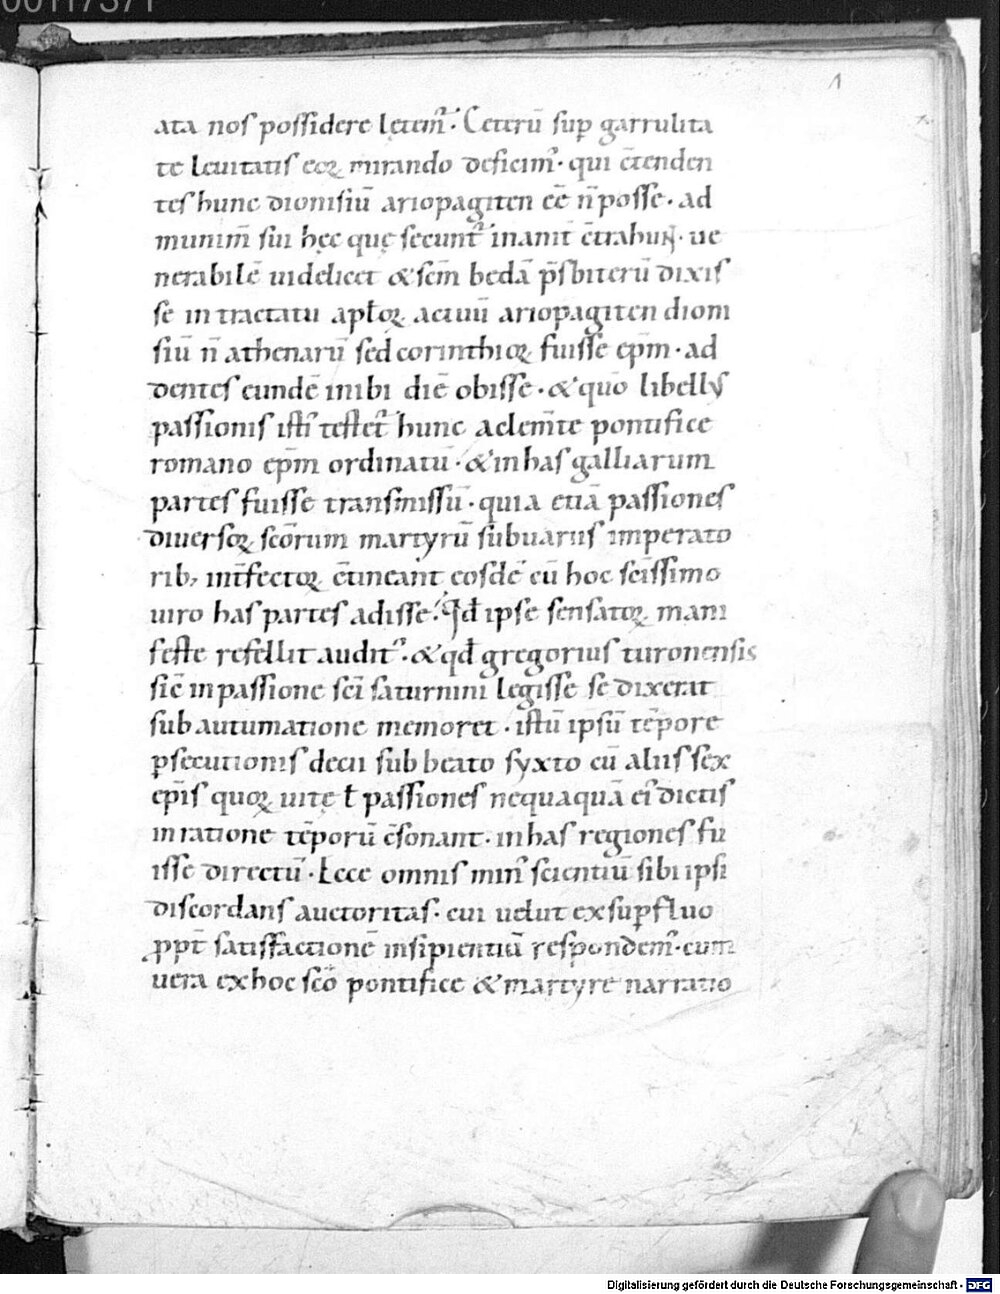 00117371
1
ata nos possidere lętem᷑. Ceterū sup garrulita
te leuitatis eoꝝ mirando deficim᷒. qui c̄tenden
tes hunc dionisiū ariopagiten eē n̄ posse. ad
munim̄ sui hęc quę secunt᷑ inanit̄ c̄trahunt. ue
nerabilē uidelicet & sc̄m bedā p̄sbiterū dixis
se in tractatu apl̄oꝝ actuū ariopagiten dioni
siū n̄ athenarū sed corinthioꝝ fuisse ep̄m. ad
dentes eundē inibi diē obisse. & quō libellꝰ
passionis isti᷒ testet᷑ hunc a clem̄te pontifice
romano ep̄m ordinatū. & in has galliarum
partes fuisse transmissū. quia etiā passiones
diuersoꝝ sc̄orum martyrū sub uariis imperato
rib; int̄fectoꝝ c̄tineant eosdē cū hoc sc̄issimo
uiro has partes adisse. Qd̄ ipse sensatoꝝ mani
feste refellit audit᷒. & qd̄ gregorius turonensis
sic̄ in passione sc̄i saturnini legisse se dixerat
sub autumatione memoret. istū ipsū tēpore
ꝑsecutionis decii sub beato syxto cū aliis sex
ep̄is quoꝝ uitę ł passiones nequaquā ei᷒ dictis
in ratione tēporū c̄sonant. in has regiones fu
isse directū. Ecce omnis min᷒ scientiū sibi ipsi
discordans auctoritas. cui uelut ex sup̄fluo
ꝓpt̄ satisfactionē insipientiū respondem᷒. cum
uera ex hoc sc̄o pontifice & martyre narratio
Digitalisierung gefördert durch die Deutsche Forschungsgemeinschaft - DFG